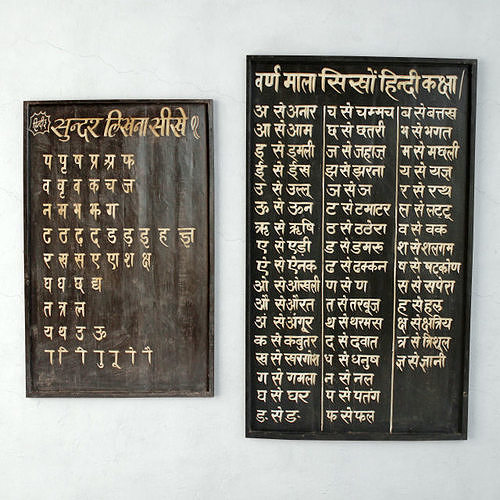 सुन्दर लिखना सीखे १
प पृ ष प्र श्र फ
व वृ ब क च ज
न म भ क ग
ट ठ ढ़ द ड ड़ ङ ह ज्ञ
र स्र स ए ण श क्ष
घ ध छ द्य
त त्र ल
य थ उ ऊ
वर्ण माला सिखों हिन्दी कक्षा
अ से अनार
आ से आम
इ से इमली
ई से ईस
उ से उल्लू
ऊ से ऊन
ऋ से ऋषि
ए से एड़ी
ऐ से ऐनक
ओ से ओखली
औ से औरत
अं से अंगूर
क से कबुतर
ख से खरगोश
ग से गमला
घ से घर
ङ से ङ
च से चम्मच
छ से छतरी
ज से जहाज
झ से झरना
ञ से ञ
ट से टमाटर
ठ से ठठेरा
ड से डमरू
ढ से ढक्कन
ण से ण
त से तरबुज
थ से थरमस
द से दवात
ध से धनुष
न से नल
प से पतंग
फ से फल
ब से बत्तख
भ से भगत
म से मछली
य से यज्ञ
र से रथ
ल से लट्टू
व से वक
श से शलगम
ष से षट्कोण
स से सपेरा
ह से हल
क्ष से क्षत्रिय
त्र से त्रिशूल
ज्ञ से ज्ञानी